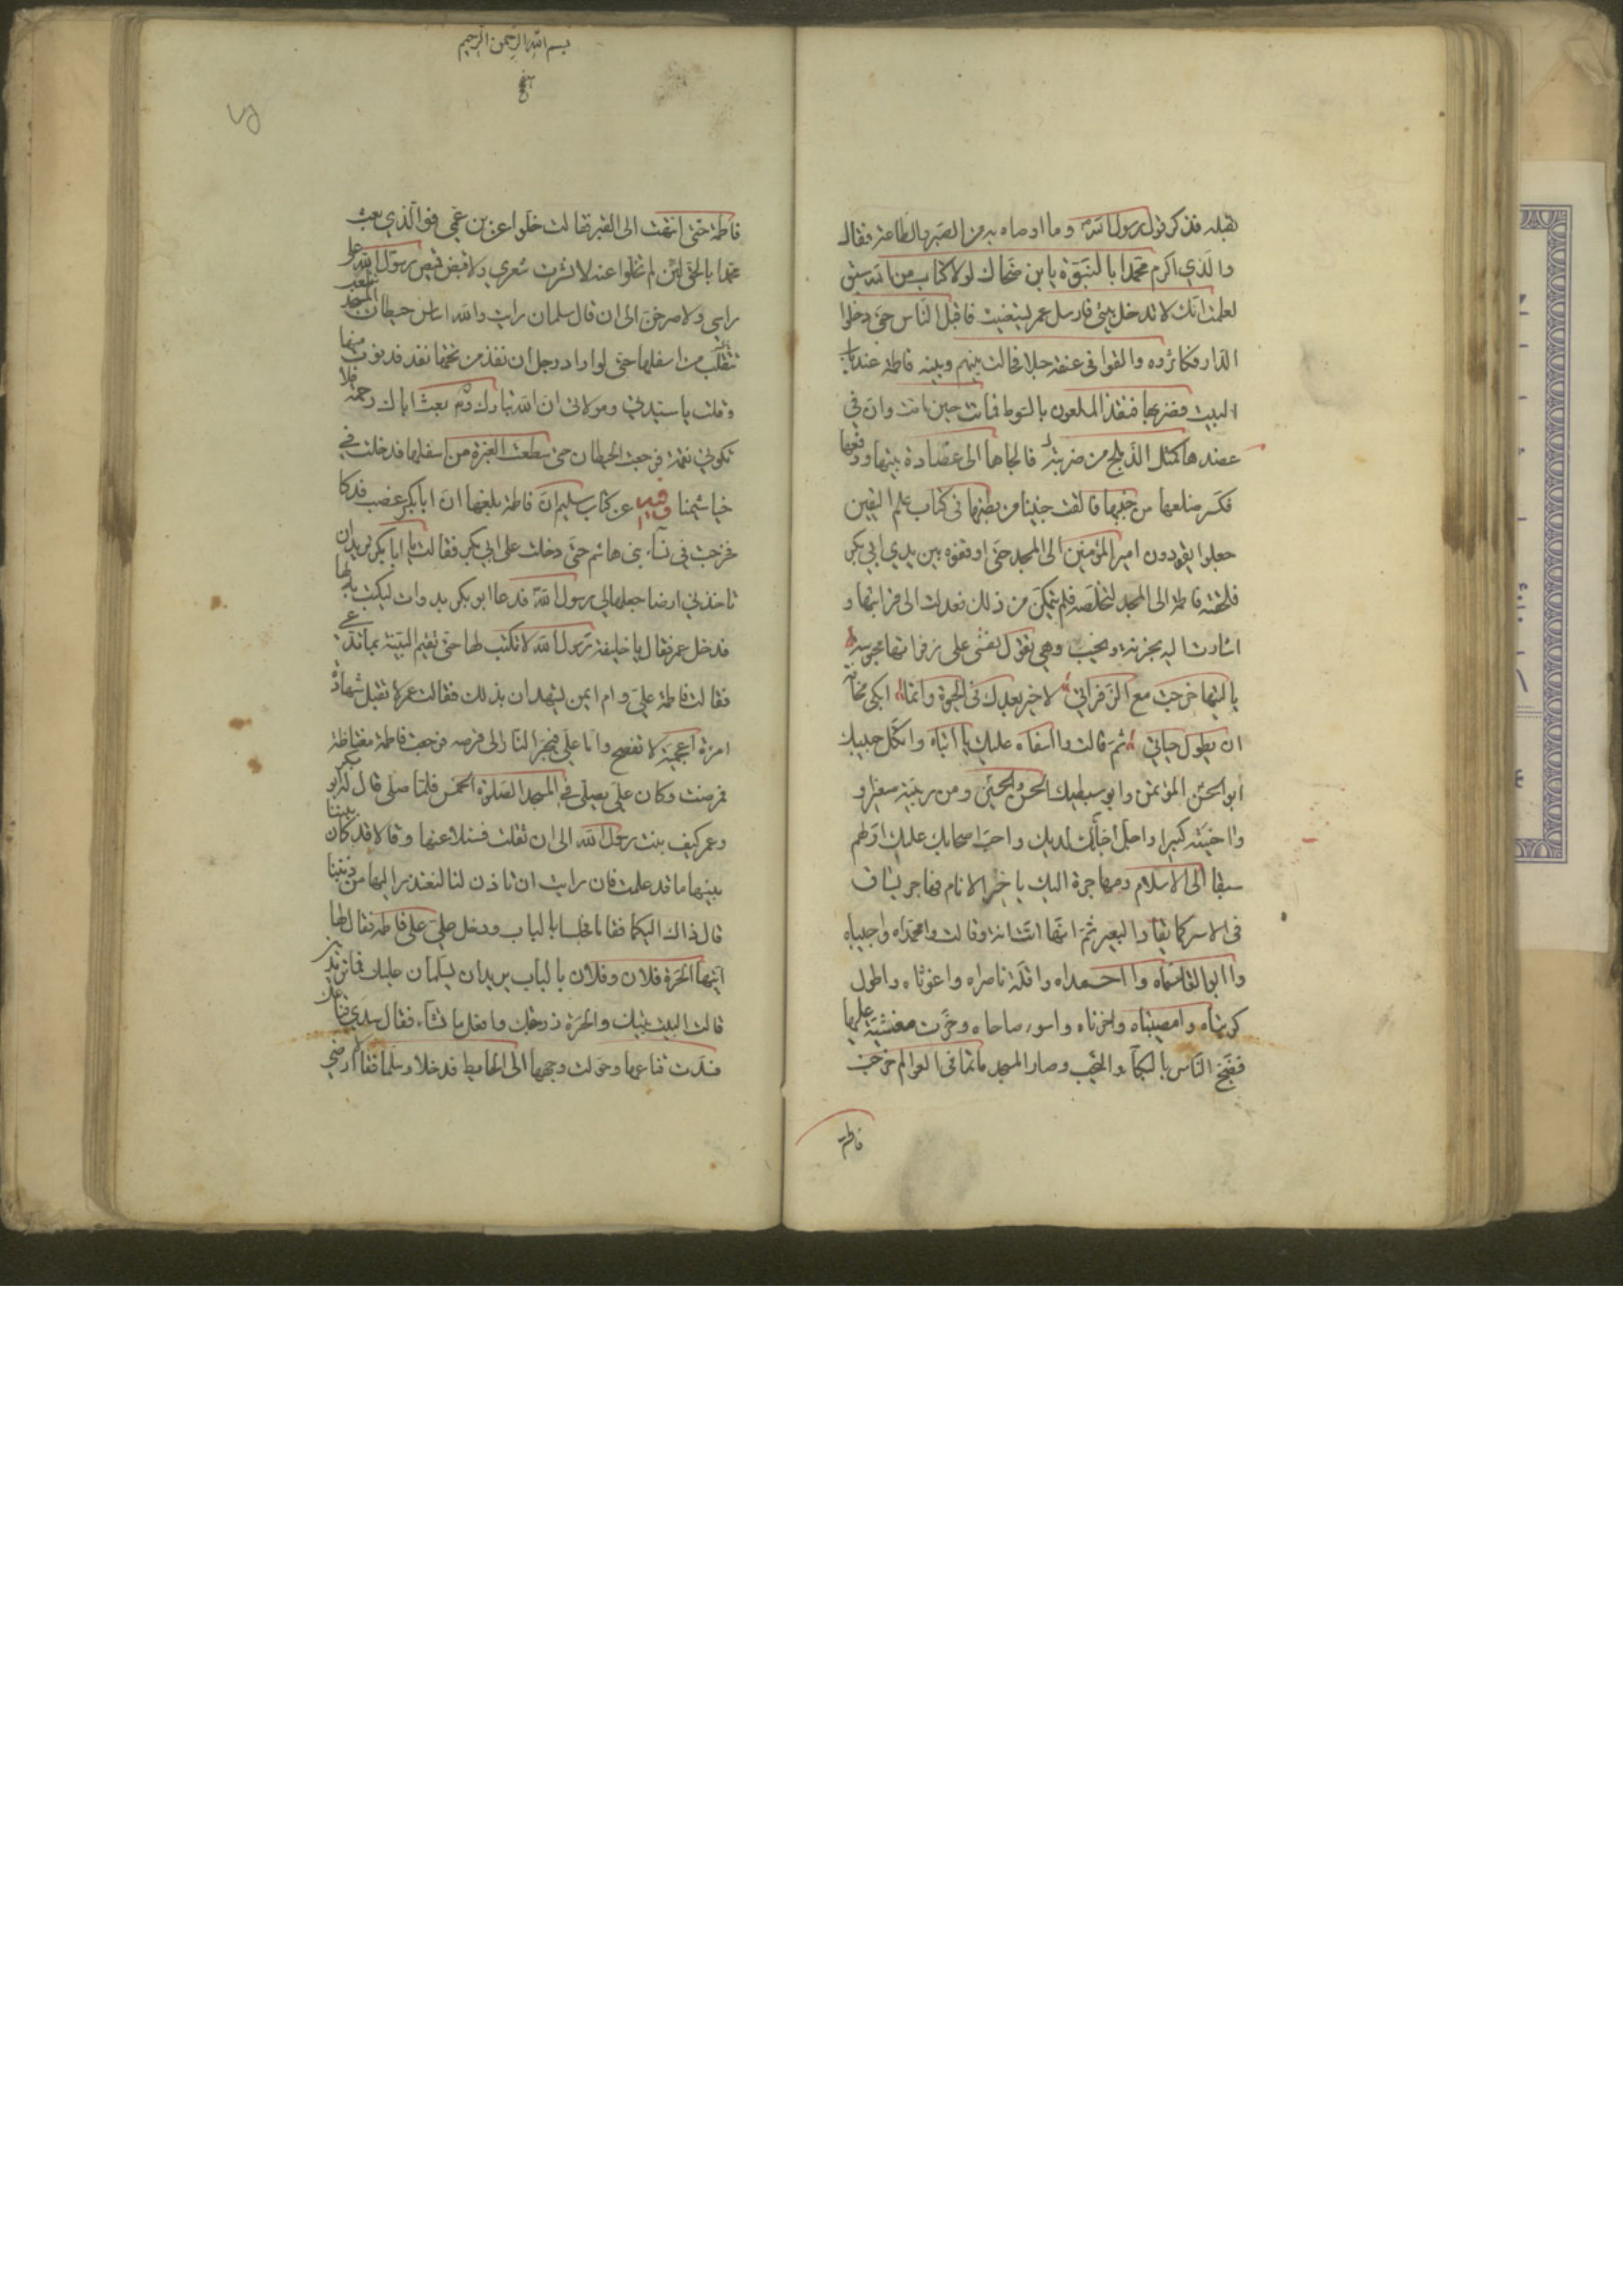 بقتله فذكر قول رسول الله ص وما اوصاه به من الصبر والطاعة فقال
والذي اكرم محمدا بالنبوة يا بن ضحاك لولا كتاب من الله سبق
لعلمت انك لا تدخل بيتي فارسل عمر ليستغيث فاقبل الناس حتى دخلوا
الدار فكاثروه والقوا في عنقه حبلا فحالت بينهم وبينه فاطمة عند باب
البيت فضربها قنفذ الملعون بالسوط فماتت حين ماتت وان في
عضدها كمثل الدملج من ضربته فالجاها الى عضادة بيتها ودفعها
فكسر ضلعها من جنبها فالقت جنينا من بطنها في كتاب علم اليقين
جعلوا يقودون امير المؤمنين الى المسجد حتى اوقفوه بين يدي ابي بكر
فلحقته فاطمة الى المسجد لتخلصه فلم تتمكن من ذلك فعدلت الى قبر ابيها و
اشارت اليه بحزنة ونحيب وهي تقول نفسي على زفراتها محبوسة
يا ليتها خرجت مع الزفرات لا خير بعدك في الحيوة وانما ابكي مخافة
ان يطول حياتي ثم قالت وااسفاه عليك يا ابتاه واثكل حبيبك
ابو الحسن المؤتمن وابو سبطيك الحسن والحسين ومن ربيته صغيرا و
واخيته كبيرا واجل احبائك لديك واحب اصحابك عليك اولهم
سبقا الى الاسلام ومهاجرة اليك يا خير الانام فها هو يساق
في الاسر كما يقاد البعير ثم انها انت انة وقالت وامحمداه واحبيباه
واابوالقاسماه وااحمداه واقلة ناصراه واغوثاه واطول
كربتاه وامصيبتاه واحزناه واسوء صباحاه وخرت مغشية عليها
فضج الناس بالبكاء والنحيب وصار المسجد ماتما في العوالم خرجت
فاطمة
بسم الله الرحمن الرحيم
فاطمة حتى انتهت الى القبر فقالت خلوا عن بن عمي فوالذي بعث
محمدا بالحق لئن لم تخلوا عنه لانشرن شعري ولاضعن قميص رسول الله على
راسي ولاصرخن الى ان قال سلمان رايت والله اساس حيطان المسجد
تقلعت من اسفلها حتى لو اراد رجل ان ينفذ من تحتها نفذ فدنوت منها
وقلت يا سيدتي ومولاتي ان الله تبارك وتم بعث اباك رحمة فلا
تكوني نقمة فرجعت الحيطان حتى سطعت الغبرة من اسفلها فدخلت في
خياشيمنا وفيه عن كتاب سليم ان فاطمة بلغها ان ابا بكر غصب فدكا
فخرجت في نساء بني هاشم حتى دخلت على ابي بكر فقالت يا ابا بكر تريد ان
تاخذ مني ارضا جعلها لي رسول الله ص فدعا ابو بكر بدوات ليكتب به لها
فدخل عمر فقال يا خليفة رسول الله لا تكتب لها حتى تقيم البينة بما تدعي
فقالت فاطمة علي وام ايمن يشهدان بذلك فقالت عمر لا تقبل شهادة
امرءة اعجمية لا تفصح واما علي فيجر النار الى قرصه فرجعت فاطمة مغتاظة
فمرضت وكان علي يصلي في المسجد الصلوة الخمس فلما صلى قال له ابو بكر
وعمر كيف بنت رسول الله الى ان ثقلت فسئلا عنها وقالا قد كان بيننا
بينها ما قد علمت فان رايت ان تاذن لنا لنعتذر اليها من ذنبنا
قال ذاك اليكما فقاما فجلسا بالباب ودخل علي على فاطمة فقال لها
ايتها الحرة فلان وفلان بالباب يريدان يسلمان عليك فما ترين
قالت البيت بيتك والحرة زوجتك وافعل ما تشاء فقال سدي قناعك
فسدت قناعها وحولت وجهها الى الحايط فدخلا وسلما فقالا ارضي